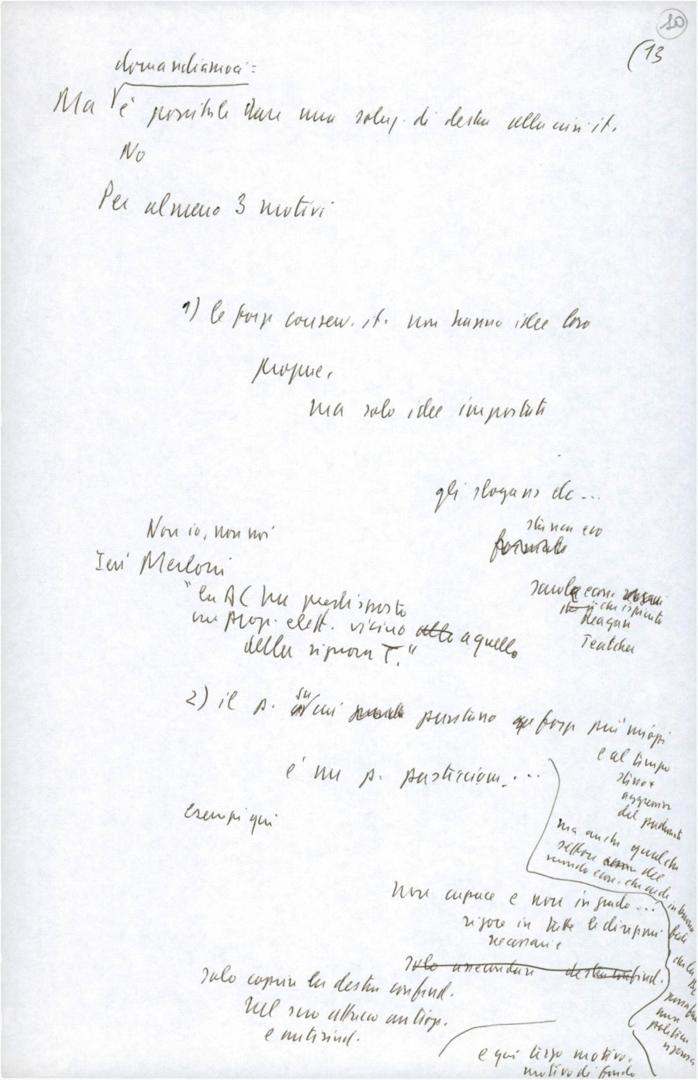 10
(13
domandiamoci:
Ma è possibile dare una soluz. di destra alla crisi it.
No
Per almeno 3 motivi
1) le forze conserv. it. non hanno idee loro
proprie,
ma solo idee importate
gli slogans di...
Non io, non noi
Ieri Merloni
"la DC ha predisposto
un progr. elett. vicino alle a quello
della signora T."
Reagan
Teatcher
2) il p. su cui puntano forze più miopi
e al tempo
stesso
aggressive
del padronato
è un p. pasticcione...
esempi qui
ma anche qualche
settore del
mondo econ. che crede in buona
fede
che la
DC
politica
rigorosa
Non capace e non in grado...
rigore in tutte le direzioni
necessarie
solo assecondare destra confind.
solo coprire la destra confind.
nel suo attacco antiop.
e antisind.
e qui terzo motivo.
motivo di fondo